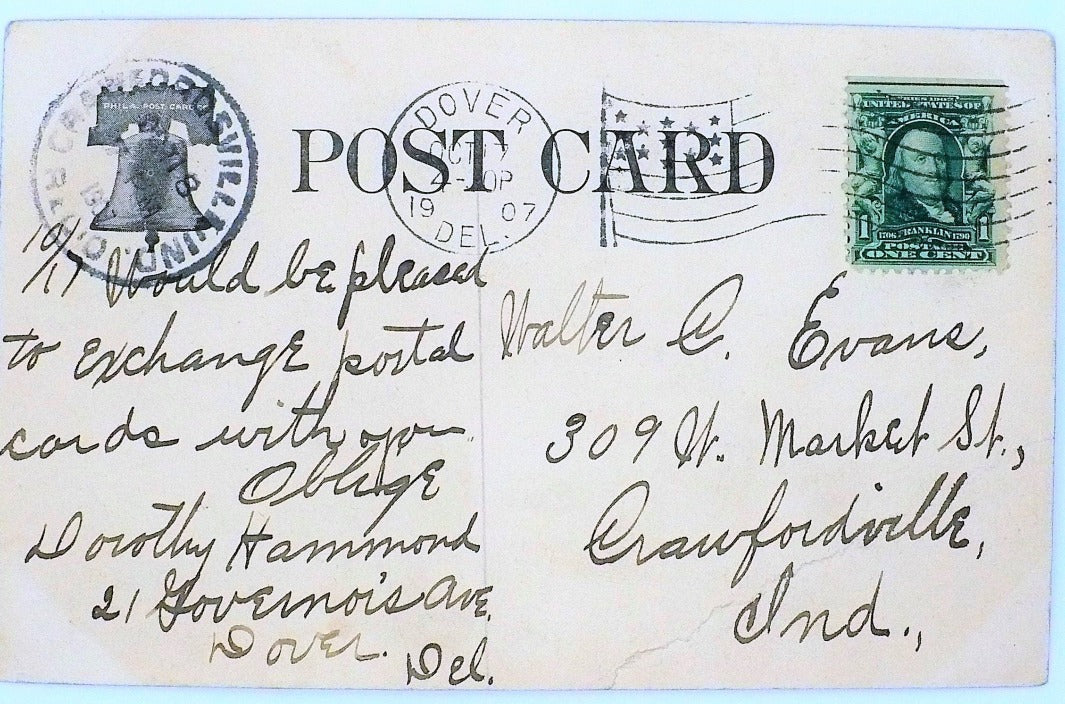 PHILA. POST CARD
CRAWFORDSVILLE IND.
POST CARD
DOVER
OCT 17
19 07
DEL.
SERIES 1902
UNITED STATES OF
AMERICA
1 1
1706 FRANKLIN 1790
POSTAGE
ONE CENT
10/17 Would be pleased
to exchange postal
cards with you
Oblige
Dorothy Hammond
21 Governois ave.
Dover.
Del.
Walter C. Evans,
309 W. Market St.,
Crawfordville,
Ind.,